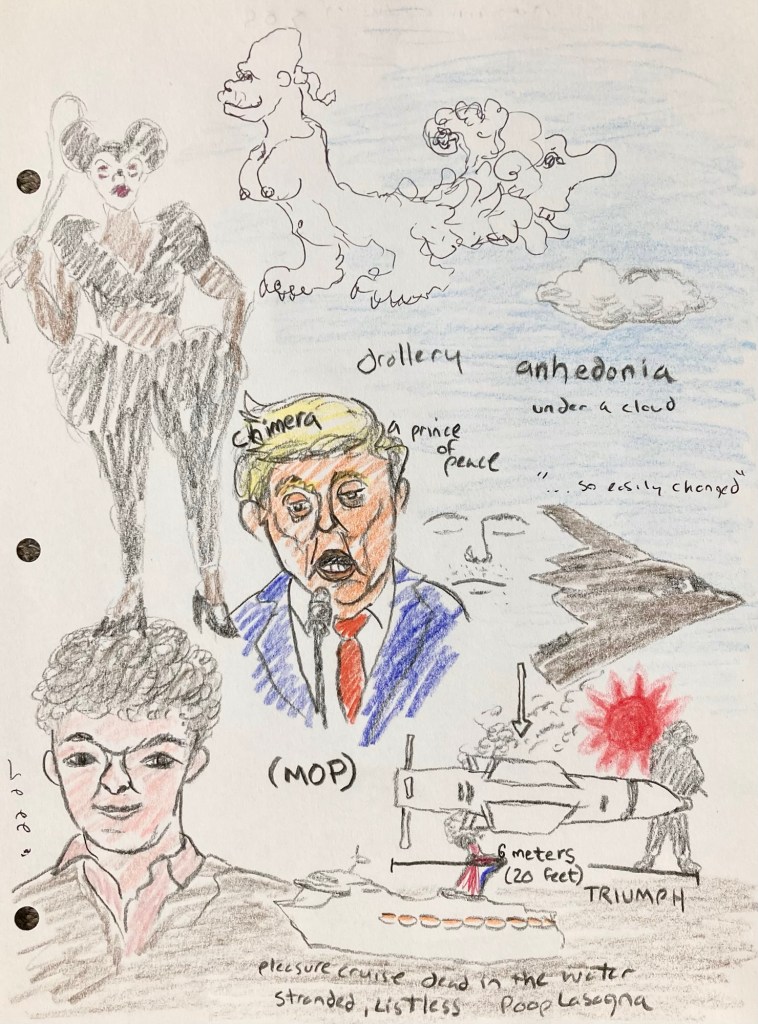 drollery
anhedonia
under a cloud
chimera
a prince
of
peace
"... so easily changed"
(MOP)
6 meters
(20 feet)
TRIUMPH
pleasure cruise dead in the water
stranded, listless Poop Lasagna